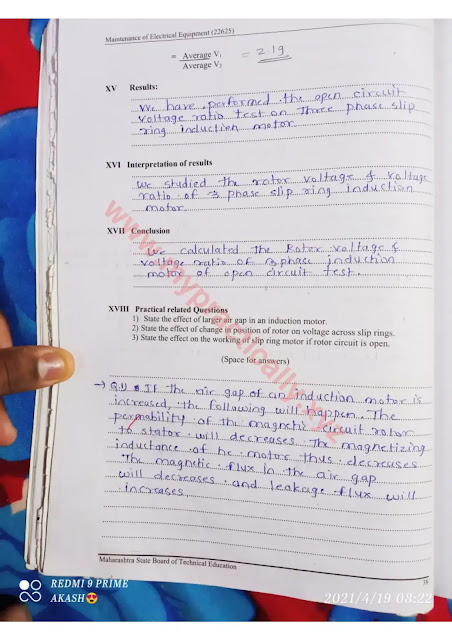 Maintenance of Electrical Equipment (22625)
= Average V₁ / Average V₂ = 2.19
XV Results:
We have performed the open circuit
voltage ratio test on Three phase slip
ring induction motor
XVI Interpretation of results
We studied the rotor voltage & voltage
ratio of 3 phase slip ring induction
motor.
XVII Conclusion
We calculated the Roter voltage &
voltage ratio of 3 phase induction
motor of open circuit test.
XVIII Practical related Questions
1) State the effect of larger air gap in an induction motor.
2) State the effect of change in position of rotor on voltage across slip rings.
3) State the effect on the working of slip ring motor if rotor circuit is open.
(Space for answers)
→ Q.1) If the air gap of an induction motor is
increased, the following will happen. The
permability of the magnetic circuit rotor
to stator will decreases. The magnetizing
inductance of he motor thus decreases
The magnetic flux in the air gap
will decreases and leakage flux will
increases
Maharashtra State Board of Technical Education
www.mypractically.xyz
REDMI 9 PRIME
AKASH😍
2021/4/19 08:22